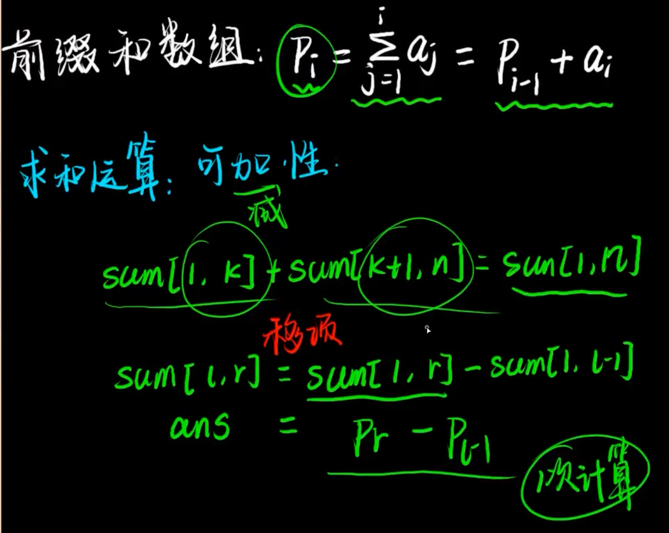 前缀和数组: P_i = \sum_{j=1}^{i} a_j = P_{i-1} + a_i
求和运算: 可加性.
减
sum[1, k] + sum[k+1, n] = sun[1, n]
移项
sum[l, r] = sum[1, r] - sum[1, l-1]
ans = Pr - P_{l-1}
1次计算